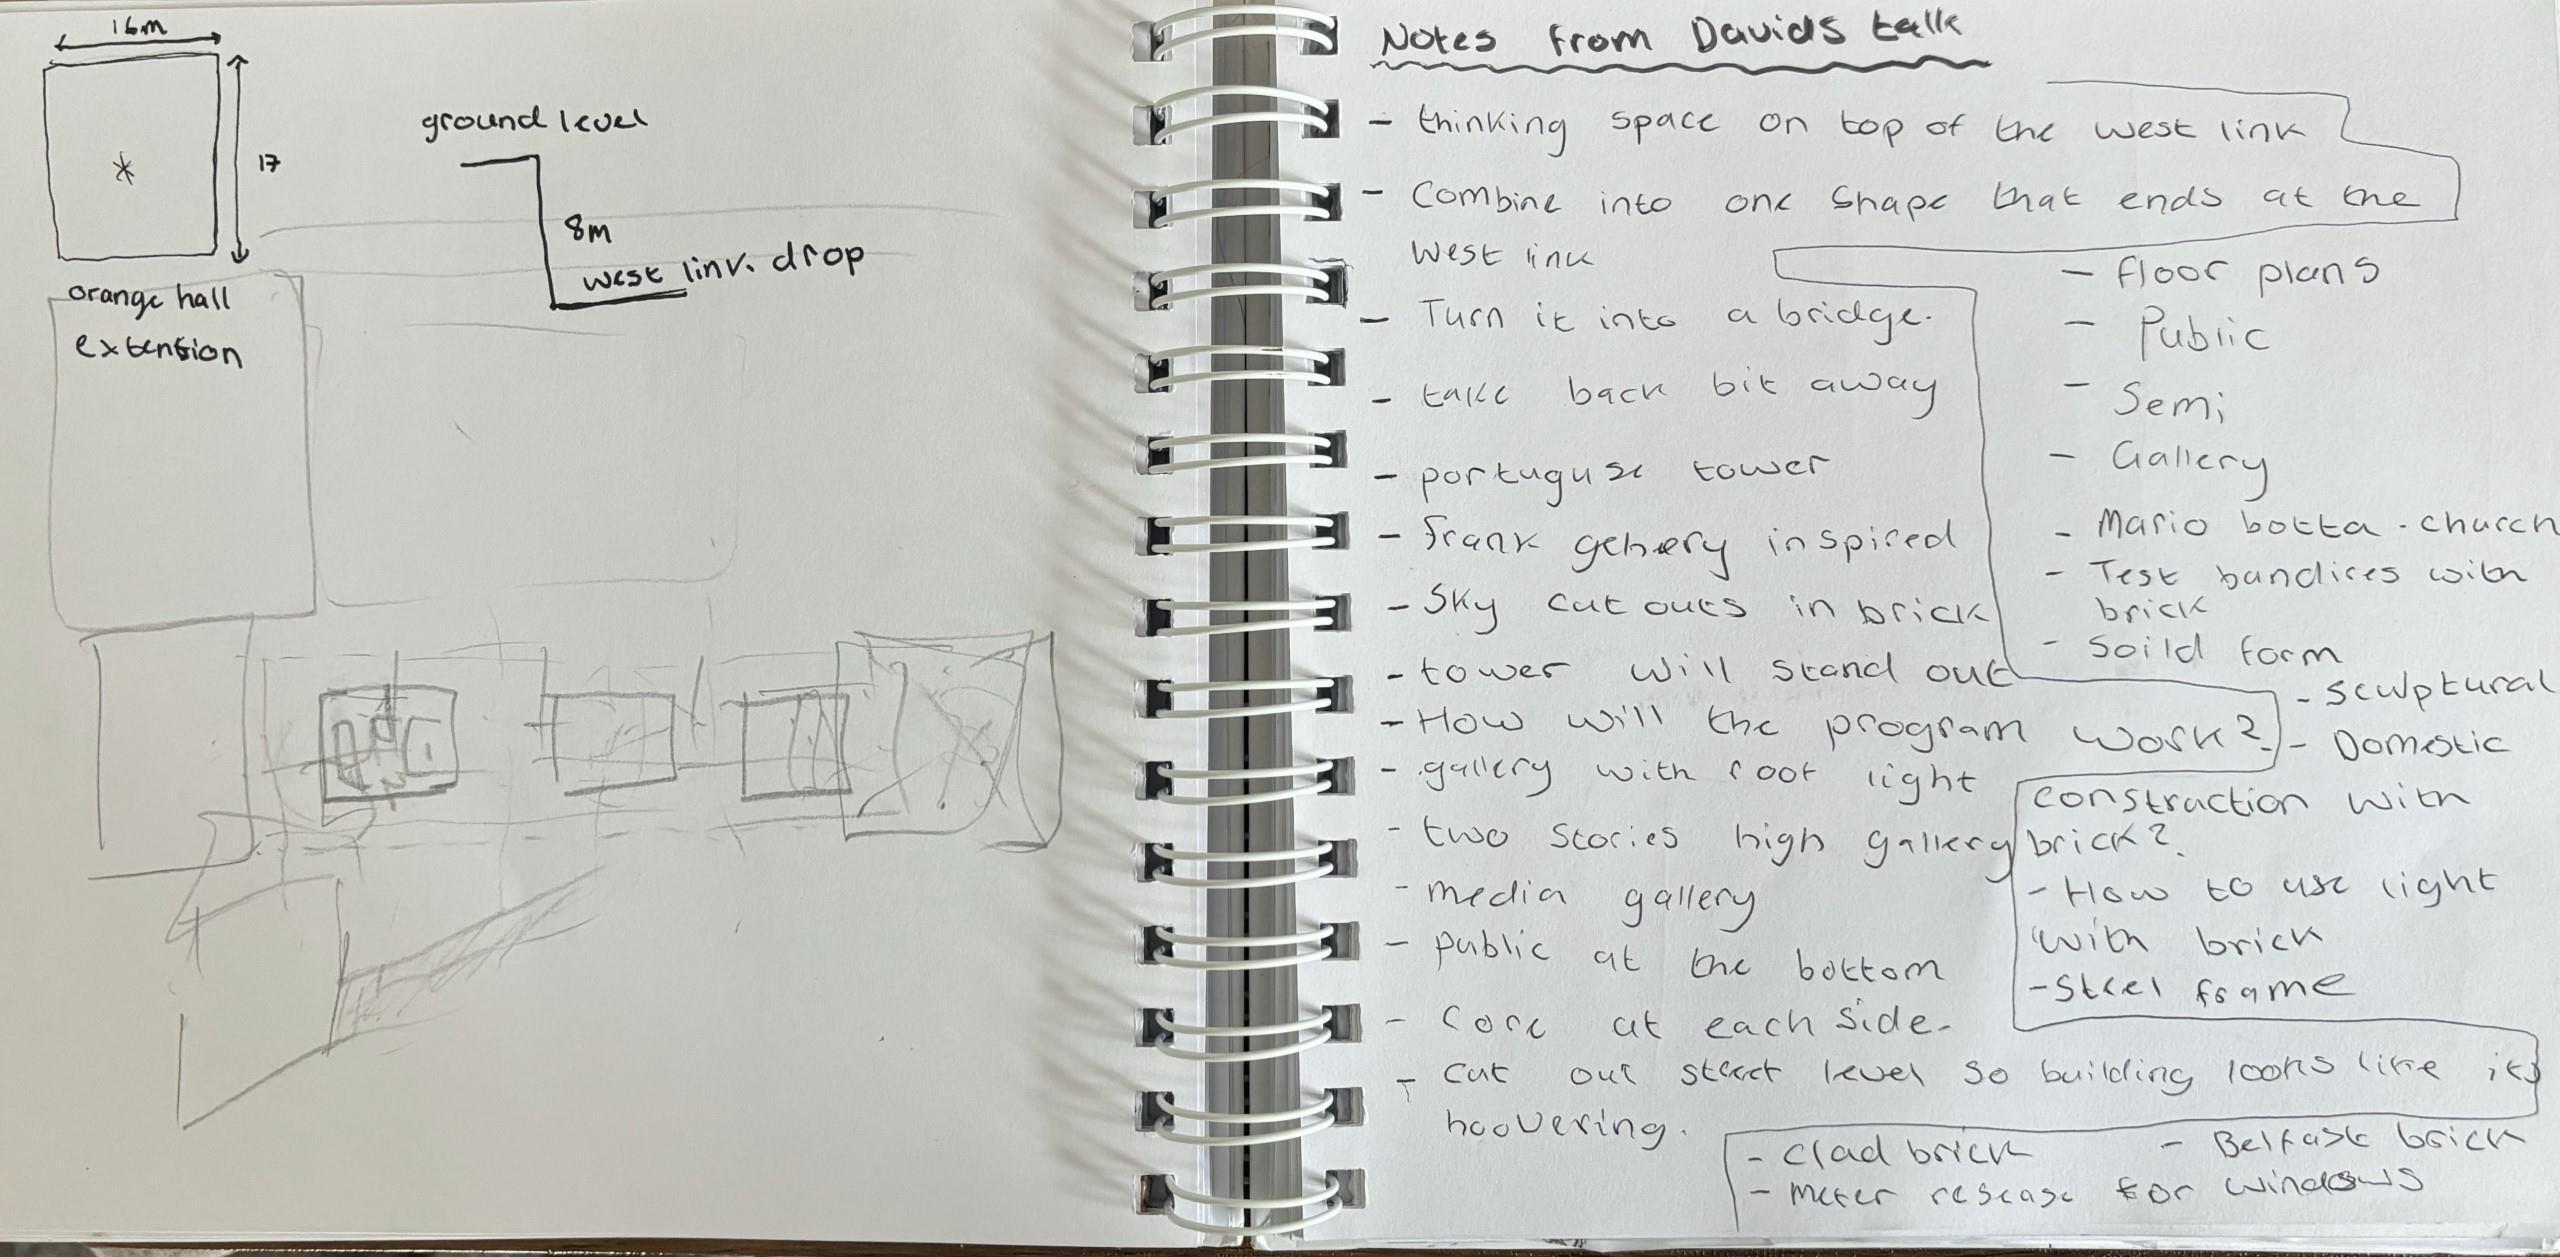 16m
17
ground level
8m
west link drop
orange hall
extension
Notes from Davids talk
- thinking space on top of the west link
- Combine into one shape that ends at the
west link
- Turn it into a bridge.
- take back bit away
- portuguse tower
- Frank gehery inspired
- Sky cut outs in brick
- tower will stand out
- How will the program work?
- gallery with roof light
- two stories high gallery
- media gallery
- public at the bottom
- Core at each side.
- cut out street level so building looks like its
hoovering.
- floor plans
- Public
- Semi
- Gallery
- Mario botta - church
- Test with
brick
- Soild form
- Sculptural
- Domestic
construction with
brick?
- How to use light
with brick
- Steel frame
- clad brick
- Belfast brick
- for windows